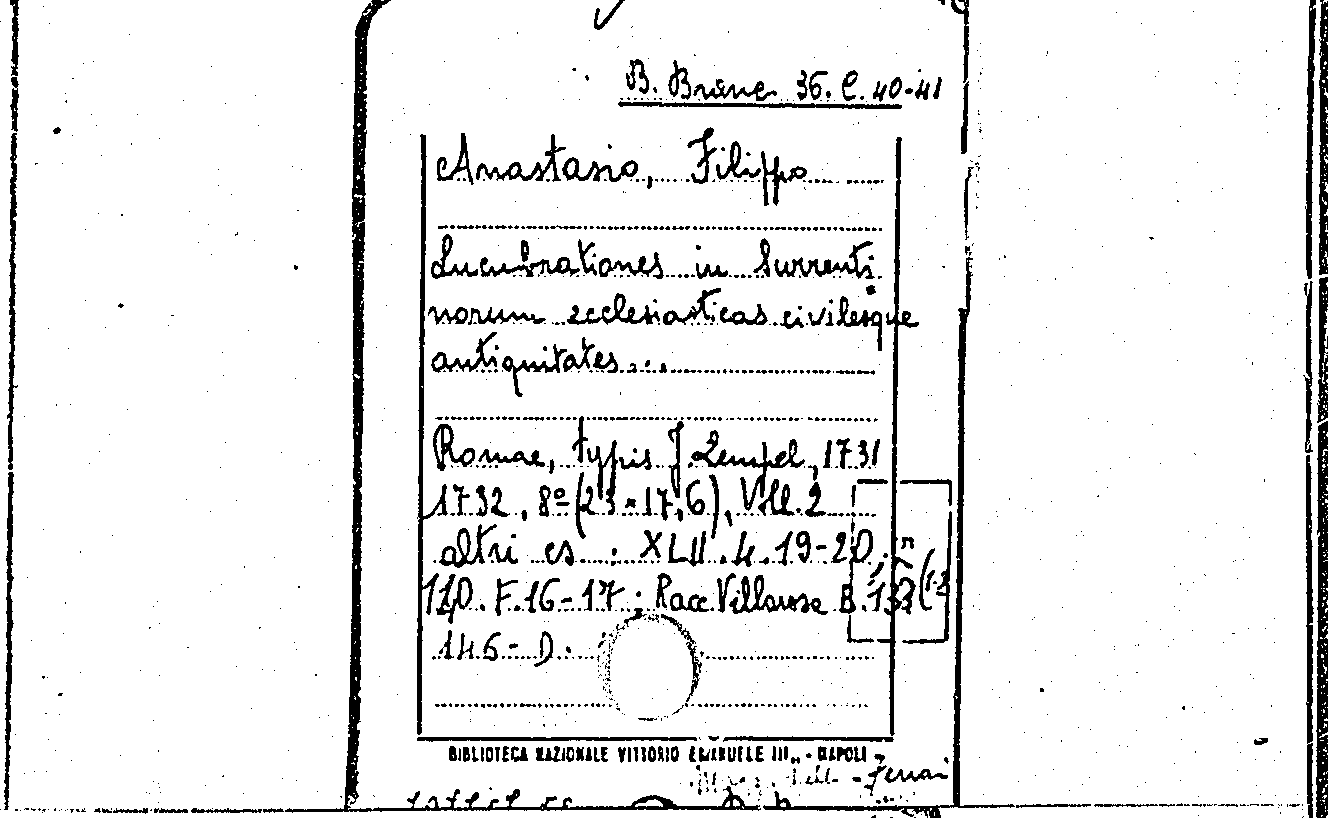 B. Branc. 36. C. 40-41
Anastasio, Filippo
Lucubrationes in Surrenti
norum ecclesiasticas civilesque
antiquitates...
Romae, typis J. Zempel, 1731
1732, 8º (23×17,6), Vll. 2
altri es. : XLII. 4. 19-20;
110. F. 16-17; Racc. Villarosa B.
146-D.
BIBLIOTECA NAZIONALE VITTORIO EMANUELE III„ - NAPOLI